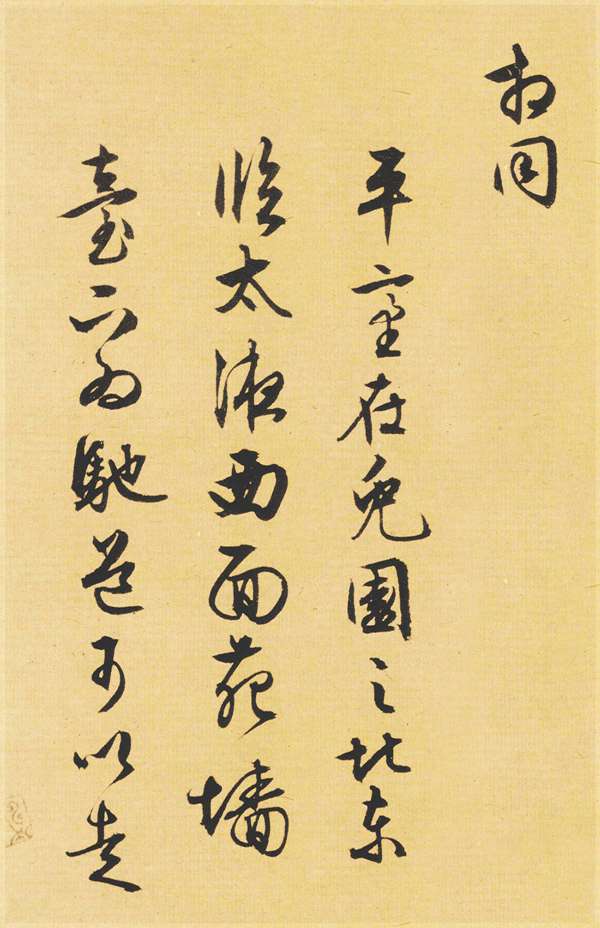 相同
平臺在兔園之北東
臨太液西面苑墻
臺下為馳道可以走